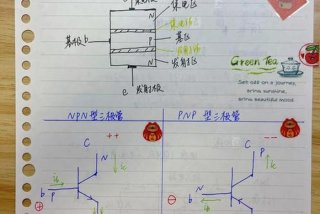 N
集电区
集电结
基极b
P
基区
发射结
N
发射区
e
发射极
Green Tea
Set out on a journey,
bring sunshine,
bring beautiful mood
NPN型三极管
PNP型三极管
C
++
C
--
N
ic
P
ic
ib
b
P
⊕
N
b
ib
⊖